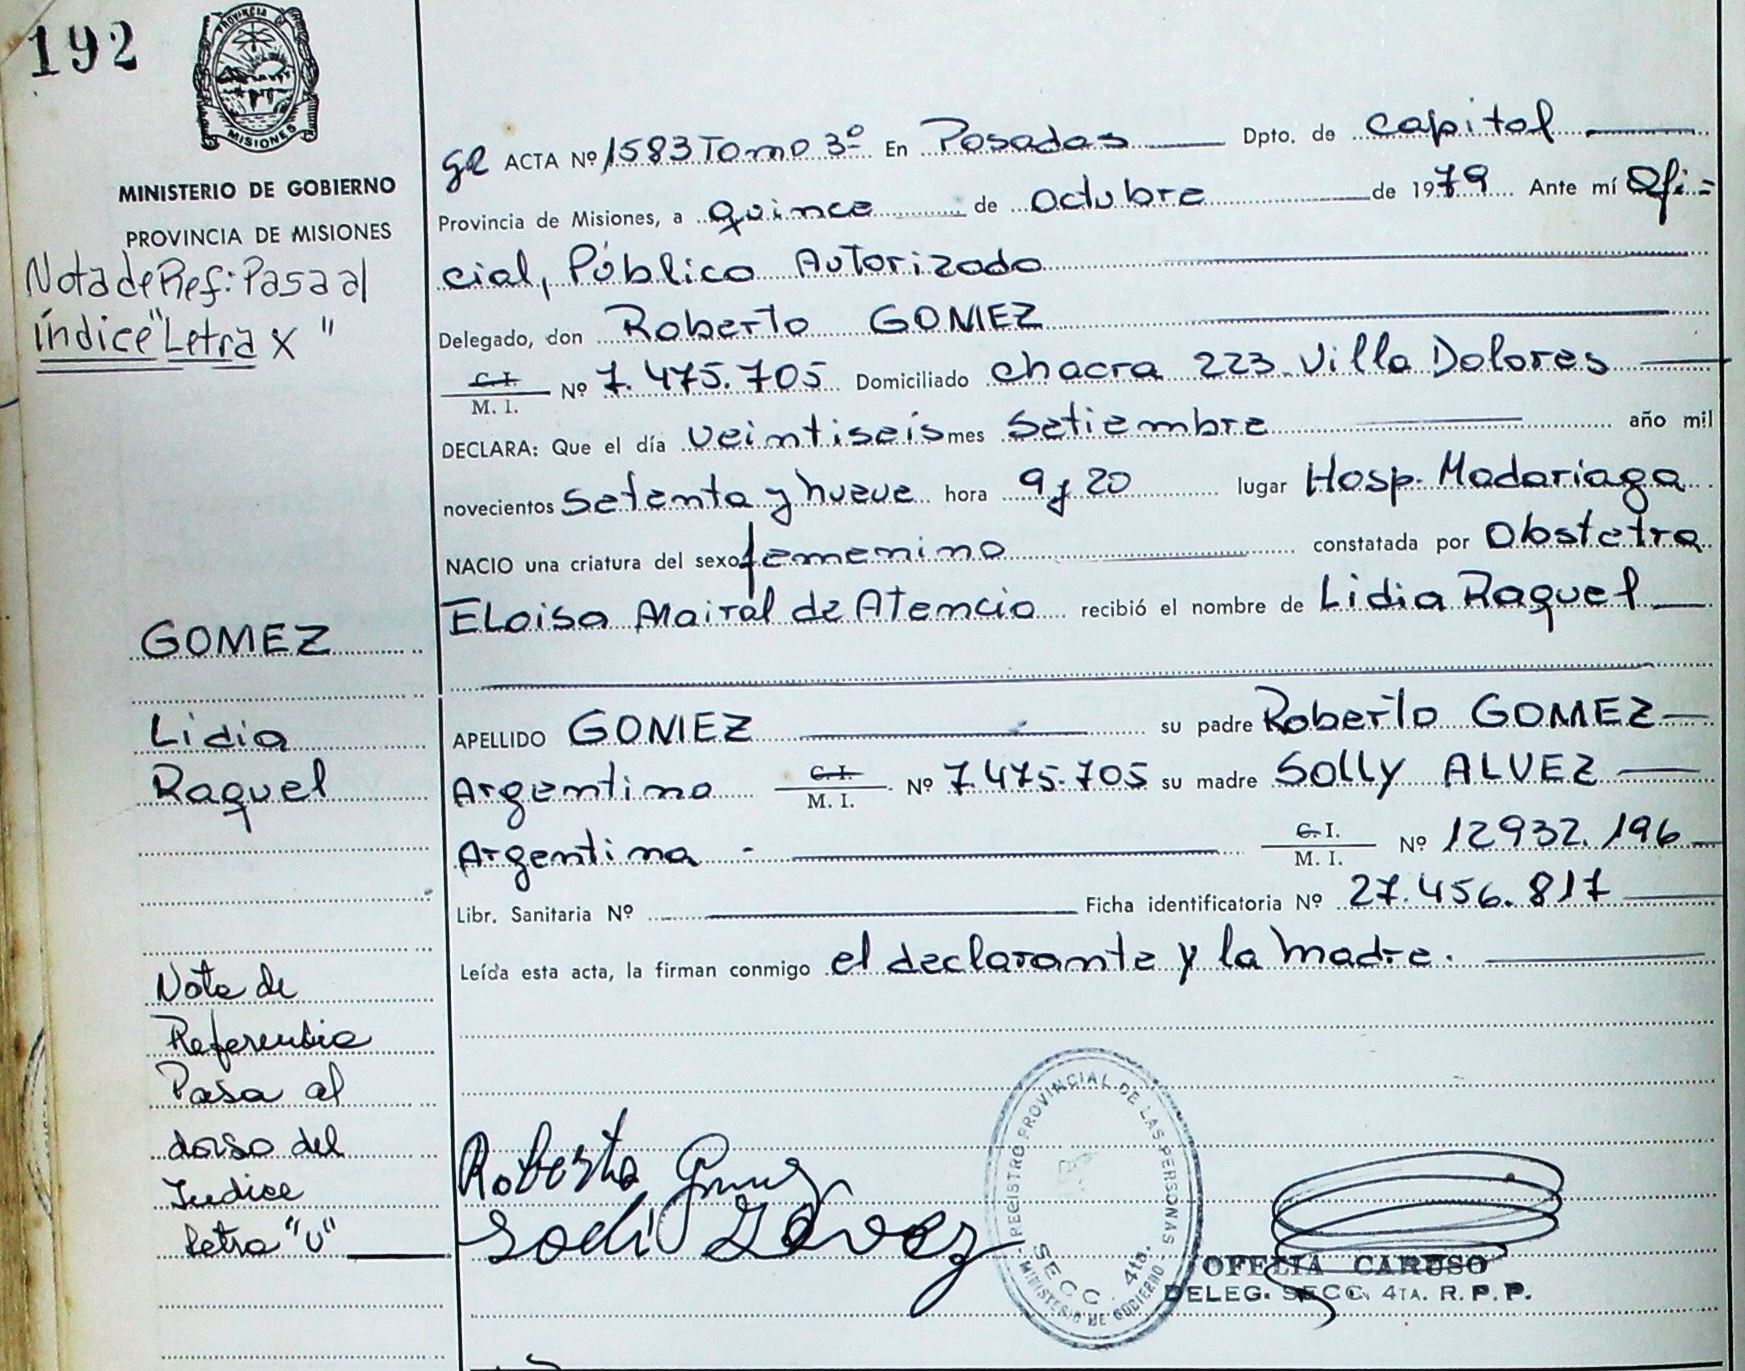 192
PROVINCIA DE
MISIONES
MINISTERIO DE GOBIERNO
PROVINCIA DE MISIONES
Nota de Ref: Pasa al
índice "Letra X"
GOMEZ
Lidia
Raquel
Nota de
Referencia
Pasa al
dorso del
Indice
letra "U"
ACTA Nº 1583 Tomo 3º En Posadas Dpto. de Capital
Provincia de Misiones, a quince de Octubre de 1979 Ante mí Ofi=
cial, Público Autorizado
Delegado, don Roberto GOMEZ
C. I. / M. I. Nº 7.475.705 Domiciliado chacra 223 Villa Dolores
DECLARA: Que el día veintiseis mes Setiembre año mil
novecientos Setenta y nueve hora 9 y 20 lugar Hosp. Madariaga
NACIO una criatura del sexo femenino constatada por Obstetra
ELoisa Mairal de Atencio recibió el nombre de Lidia Raquel
APELLIDO GOMEZ su padre Roberto GOMEZ
Argentino C. I. / M. I. Nº 7.475.705 su madre Solly ALVEZ
Argentina - C. I. / M. I. Nº 12932.196
Libr. Sanitaria Nº Ficha identificatoria Nº 27.456.817
Leída esta acta, la firman conmigo el declarante y la madre.
Roberto Gomez
REGISTRO PROVINCIAL DE LAS PERSONAS
SECC. 4ta.
MINISTERIO DE GOBIERNO
OFELIA CARUSO
DELEG. SECC. 4TA. R. P. P.